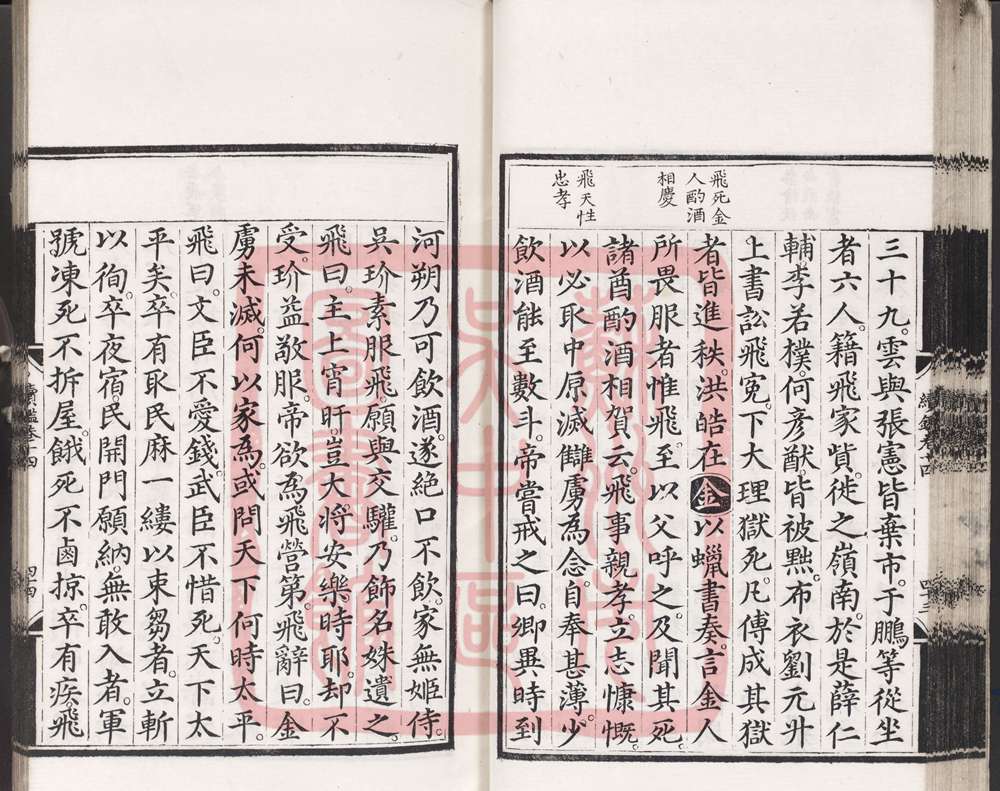 飛死金
人酌酒
相慶
飛天性
忠孝
三十九。雲與張憲皆棄市。于鵬等從坐
者六人。籍飛家貲。徙之嶺南。於是薛仁
輔李若樸。何彥猷。皆被黜。布衣劉元升
上書訟飛冤。下大理獄死。凡傅成其獄
者皆進秩。洪皓在金以蠟書奏。言金人
所畏服者惟飛。至以父呼之。及聞其死。
諸酋酌酒相賀云。飛事親孝。立志慷慨。
以必取中原滅讎虜為念。自奉甚薄。少
飲酒能至數斗。帝嘗戒之曰。卿異時到
河朔乃可飲酒。遂絕口不飲。家無姬侍。
吳玠素服飛。願與交驩。乃飾名姝遺之。
飛曰。主上宵旰。豈大將安樂時耶。却不
受。玠益敬服。帝欲為飛營第。飛辭曰。金
虜未滅。何以家為。或問天下何時太平。
飛曰。文臣不愛錢。武臣不惜死。天下太
平矣。卒有取民麻一縷以束芻者。立斬
以徇。卒夜宿。民開門願納。無敢入者。軍
號凍死不拆屋。餓死不鹵掠。卒有疾。飛
續鑑卷十四
四十四
蘇州市
吳中區
圖書館